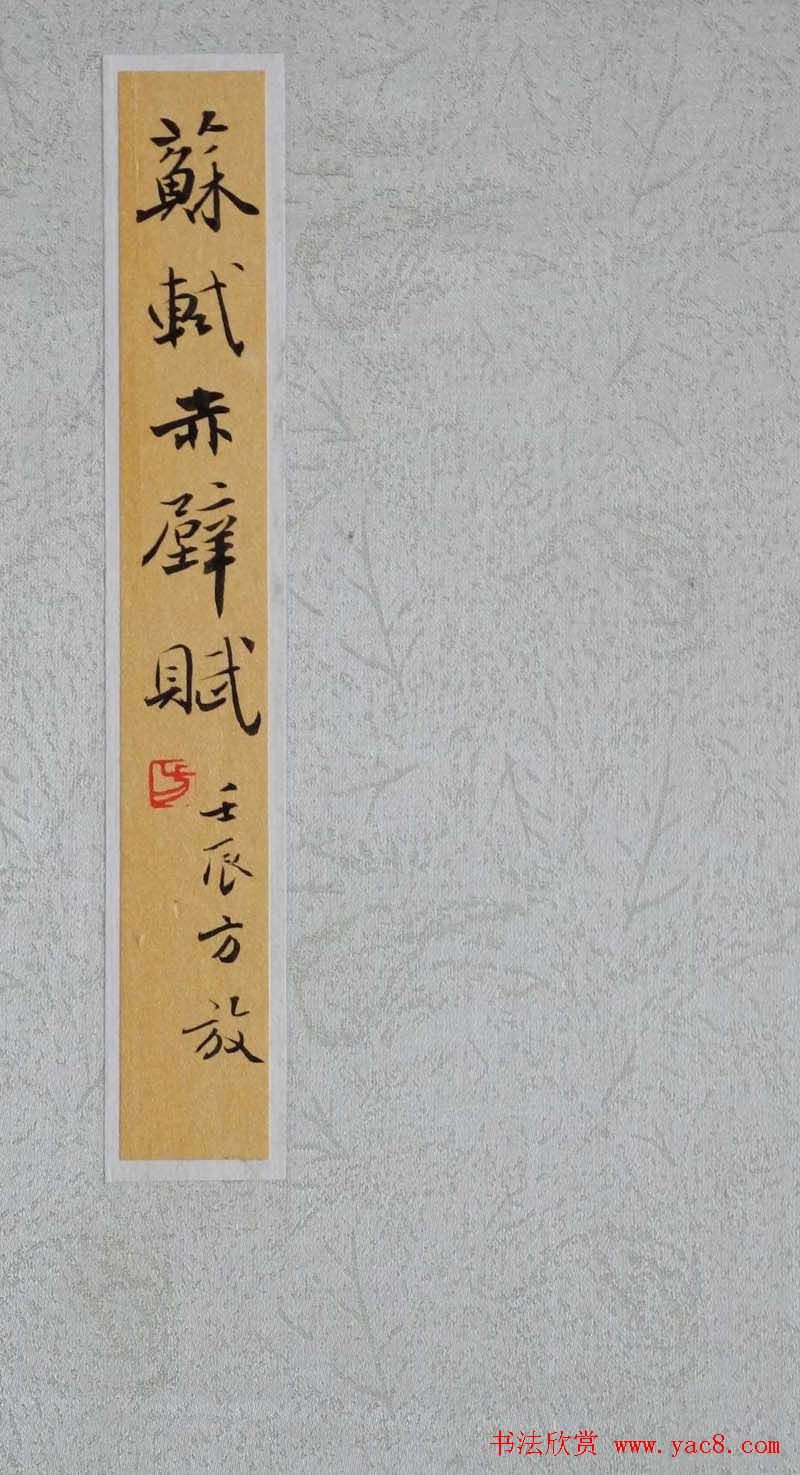 蘇軾赤壁賦
壬辰方放
书法欣赏 www.yac8.com